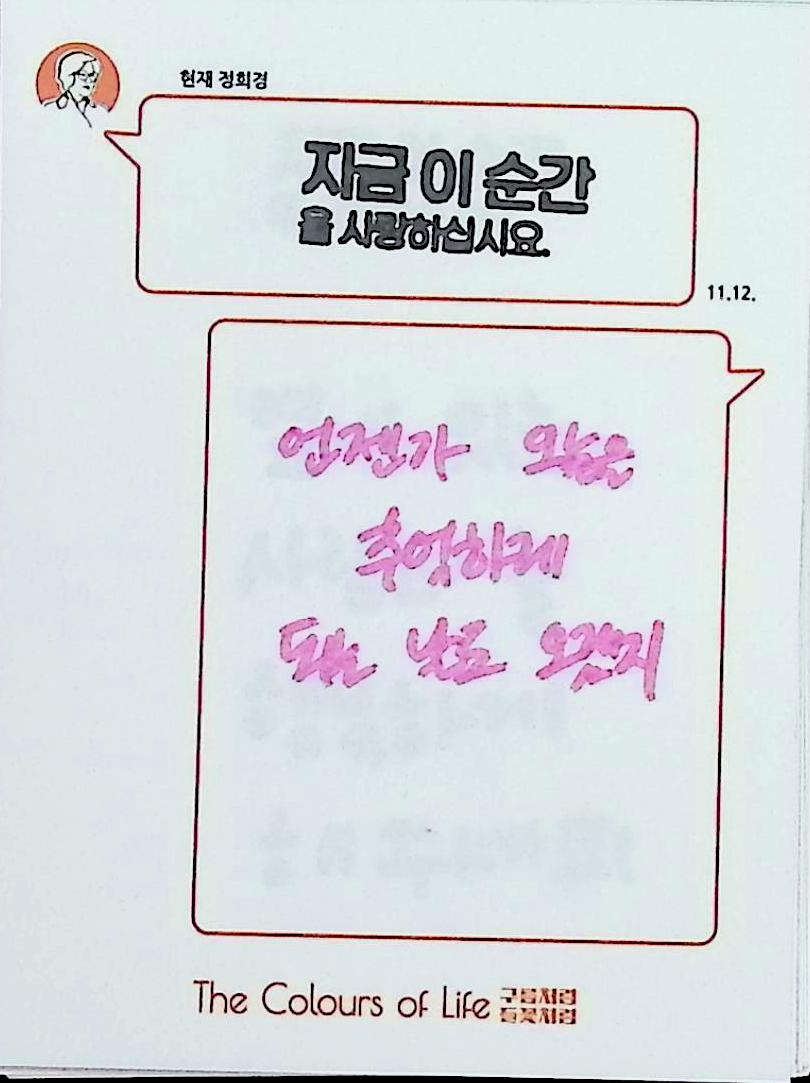 현재 정희경
지금 이 순간
을 사랑하십시요.
11.12.
언젠가 오늘을
추억하게
되는 날도 오겠지
The Colours of Life 구름처럼
들꽃처럼